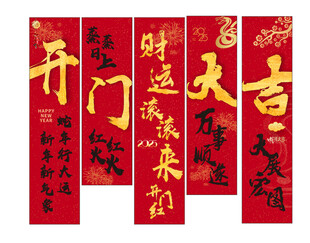 开
HAPPY
NEW YEAR
蛇年行大运
新年新气象
蒸蒸
日上
门
红红
火火
财运
滚滚
滚
2025
来
开门
红
2025
大
万事
顺遂
吉
大展
宏图